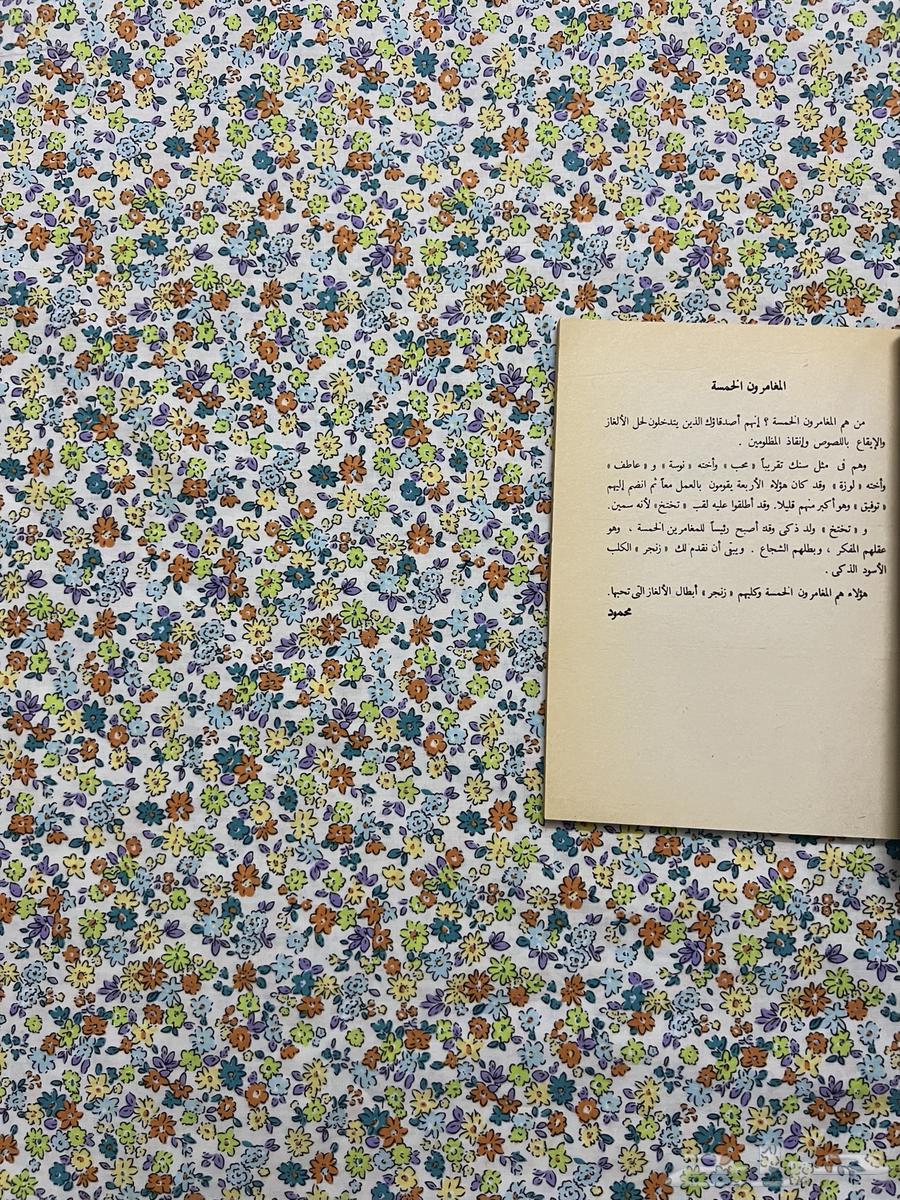 المغامرون الخمسة
من هم المغامرون الخمسة ؟ إنهم أصدقاؤك الذين يتدخلون لحل الألغاز
والإيقاع باللصوص وإنقاذ المظلومين .
وهم فى مثل سنك تقريباً « محب » وأخته « نوسة » و « عاطف »
وأخته « لوزة » وقد كان هؤلاء الأربعة يقومون بالعمل معاً ثم انضم إليهم
« توفيق » وهو أكبر منهم قليلا. وقد أطلقوا عليه لقب « تختخ » لأنه سمين.
و « تختخ » ولد ذكى وقد أصبح رئيساً للمغامرين الخمسة ، وهو
عقلهم المفكر ، وبطلهم الشجاع . ويبقى أن نقدم لك « زنجر » الكلب
الأسود الذكى .
هؤلاء هم المغامرون الخمسة وكلبهم « زنجر » أبطال الألغاز التى تحبها.
محمود